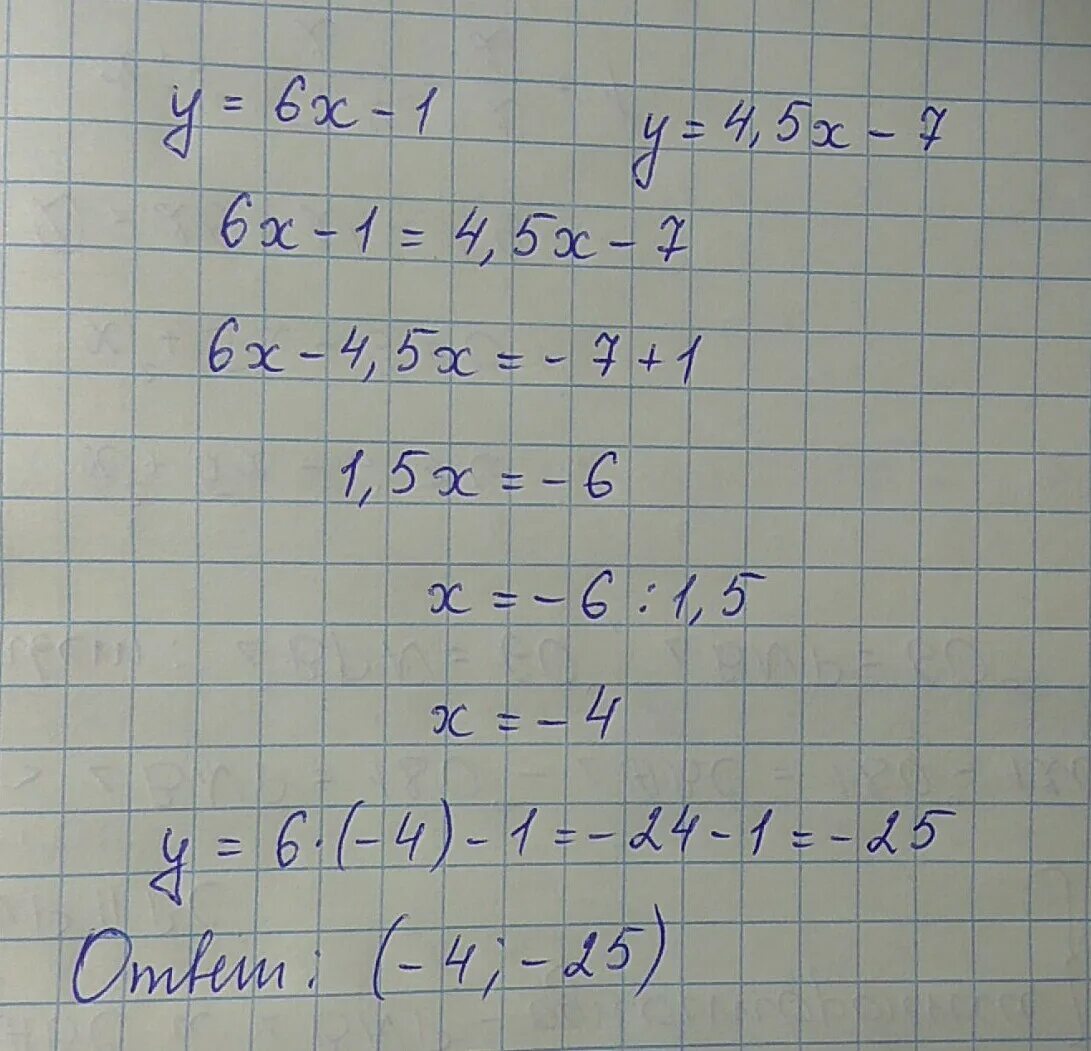 y = 6x - 1     y = 4,5x - 7
6x - 1 = 4,5x - 7
6x - 4,5x = - 7 + 1
1,5x = - 6
x = - 6 : 1,5
x = - 4
y = 6·(-4) - 1 = - 24 - 1 = - 25
Ответ: (-4; -25)